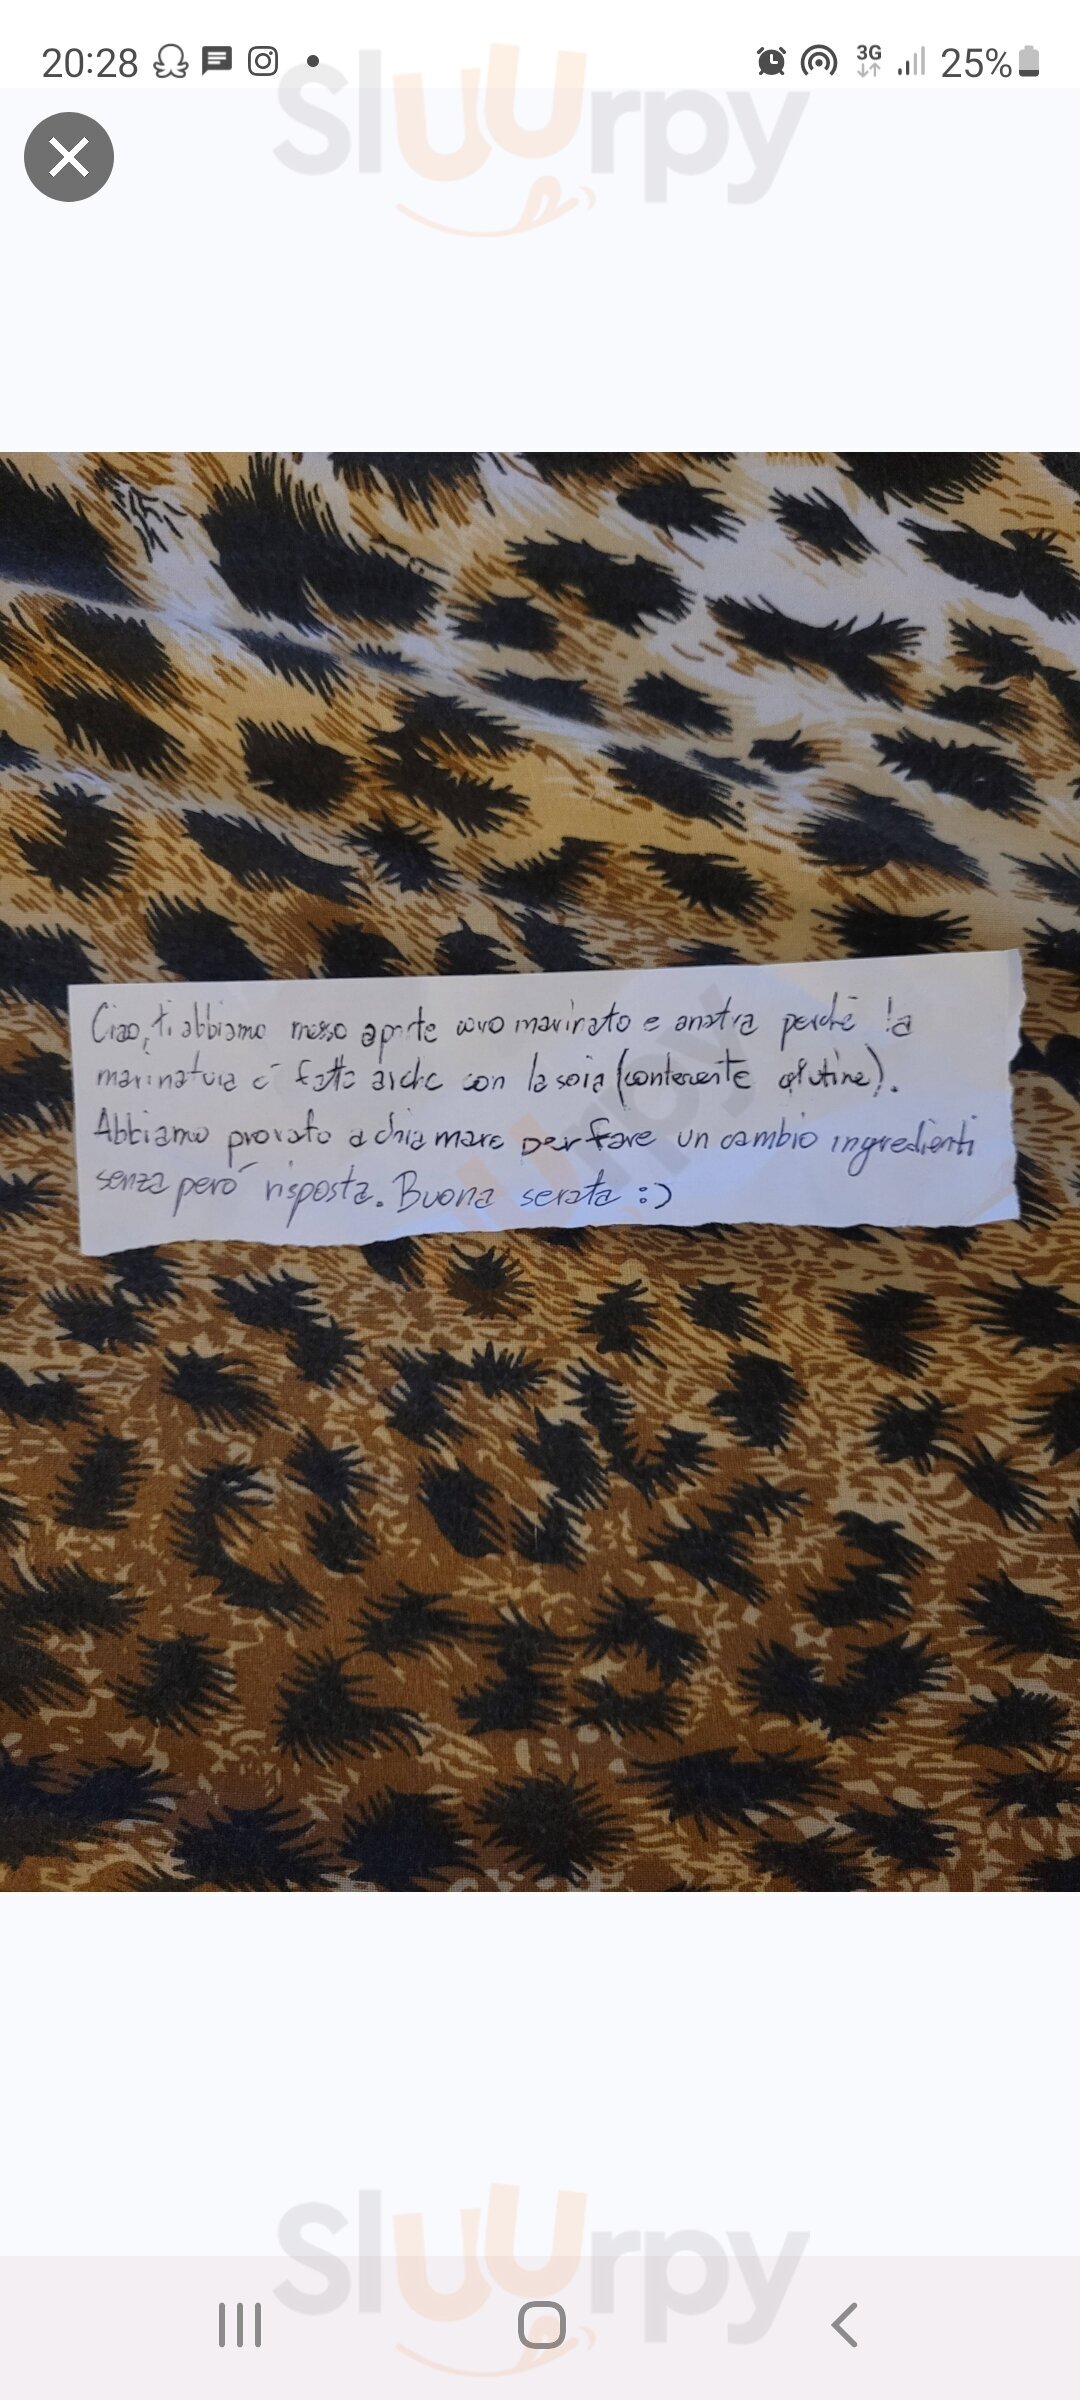 20:28
3G
25%
Sluurpy
Ciao, ti abbiamo messo aparte uovo marinato e anatra perché la
marinatura è fatta anche con la soia (contenente glutine).
Abbiamo provato a chiamare per fare un cambio ingredienti
senza però risposta. Buona serata :)
Sluurpy